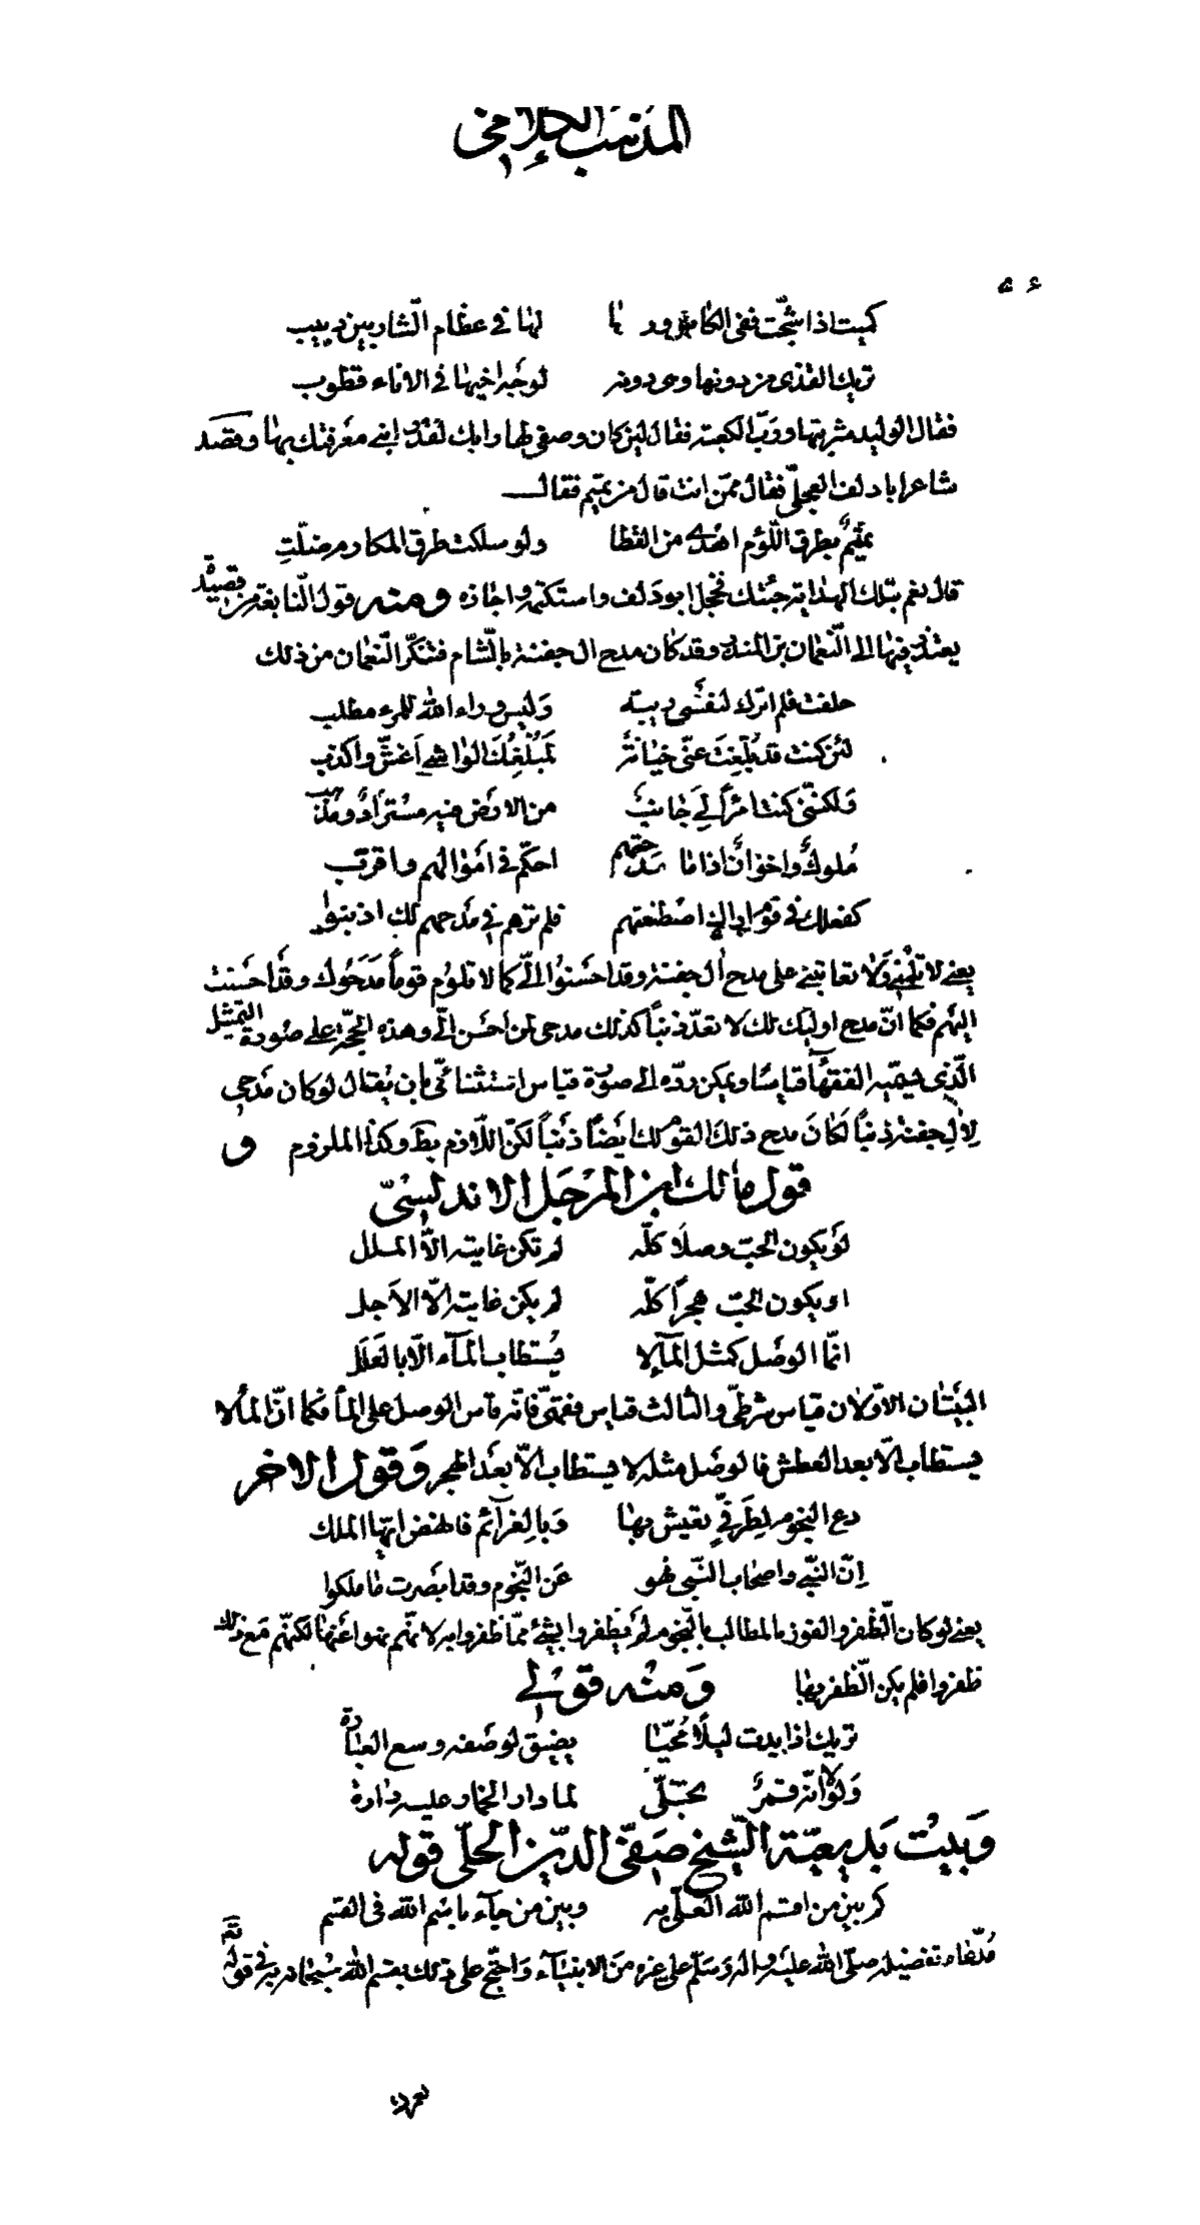 المذهب الكلامي
كميت اذا شجّت ففى الكاس وردها لها في عظام الشاربين دبيب
تريك القذى من دونها وهى دونه لوجه اخيها في الاناء قطوب
فقال الوليد شربتها وربّ الكعبة فقال لئن كان وصفى لها رابك لقد رابنى معرفتك بها وقصد
شاعر ابا دلف العجلىّ فقال ممّن انت قال من تميم فقال
تميمٌ بطرق اللّؤم اهدى من القطا ولو سلكت طرق المكارم ضلّتِ
قال نعم بتلك الهداية جئتك فخجل ابو دلف واستكتمه واجازه ومنه قول النّابغة من قصيدة
يعتذر فيها الى النّعمان بن المنذر وقد كان مدح ال جفنة بالشّام فتنكّر النّعمان من ذلك
حلفت فلم اترك لنفسى ريبة وَليس وراء اللّه للمرء مطلب
لئن كنت قد بُلّغتَ عنّى خيانةً لَمُبْلِغُكَ الواشى اَغشّ واكذب
وَلكنّنى كنت امرأً لِيَ جانبٌ من الارض فيه مسترادٌ ومذهب
مُلوكٌ واخوانٌ اذا ما مدحتهم احكّم في اَموالهم واقرّب
كفعلك فى قوم اراك اصطنعتهم فلم ترهم في مَدحهم لك اذنبوا
يعنى لا تلُمْنى وَلا تعاتبنى على مدح اٰل جفنة وقد احسَنوُا الىّ كما لا تلوُم قوماً مَدَحُوك وقد احسَنت
اليهم فكما انّ مدح اولئك لك لا تعدّ ذنباً كذلك مدحى لمن اَحسَن الىّ وهذه الحجّة على صُورة التمثيل
الّذى يسمّيه الفقهآء قياسًا ويمكن ردّه الى صورة قياس استثنائىّ بان يُقال لو كان مَدحى
لاٰلِ جفنة ذنباً لَكانَ مدح ذلك القوم لك اَيضاً ذَنباً لكنّ اللّازم بط وكذا الملزوم و
قول مٰالك ابن المرَحَل الاندلسىّ
لَو يكون الحبّ وصلًا كلّه لم تكن غايته الّا الملل
او يكون الحبّ هجراً كلّه لم يكن غايته الّا الاَجل
انّما الوصَل كمثل المآءِ لا يُستطاب المآء الّا بالعَلَل
البيَتٰان الاوّلان قياس شرطىّ والثالث قياس فقهىّ فانّه قاس الوصل على المآء فكما انّ المآء لا
يستطاب الّا بعد العطش فالوصَل مثله لا يستطاب الّا بعَد الهجر وَقول الاخر
دع النجوم لِطَرقىٍّ يعيش بهٰا وَبالعزآئم فانهض ايّها الملك
اِنّ النبّى واصحاب النبّى نهوا عَن النّجوم وقد ابصَرت مٰا ملكوا
يعنى لو كان الظّفر والفوز بالمطالب بالنّجوم لَم يظفروا بشئ ممّا ظفروا به لانهّم نهوا عَنها لكنهّم مَع ذلك
ظفروا فلم يكن الظّفر بها وَمنْه قَولى
تريك اذا بدت ليلًا مُحيّا يضيق لوصَفه وسع العبٰارة
وَلولا انّه قمرٌ تجَلّى لما دار الخمار عليه دٰارة
وَبيْت بَديعيّة الشّيخ صَفّى الدّين الحلّى قوله
كم بين من اقسم اللّه العلّى به وبين من جآء باسْم اللّه فى القسَم
مُدّعٰاه تفضيله صلّى اللّه عليه واله وسَلّم على غيره منَ الانبيآء وَاحتجّ على ذلك بقسَم اللّه سُبحٰانه به فى قوله تَعٰ